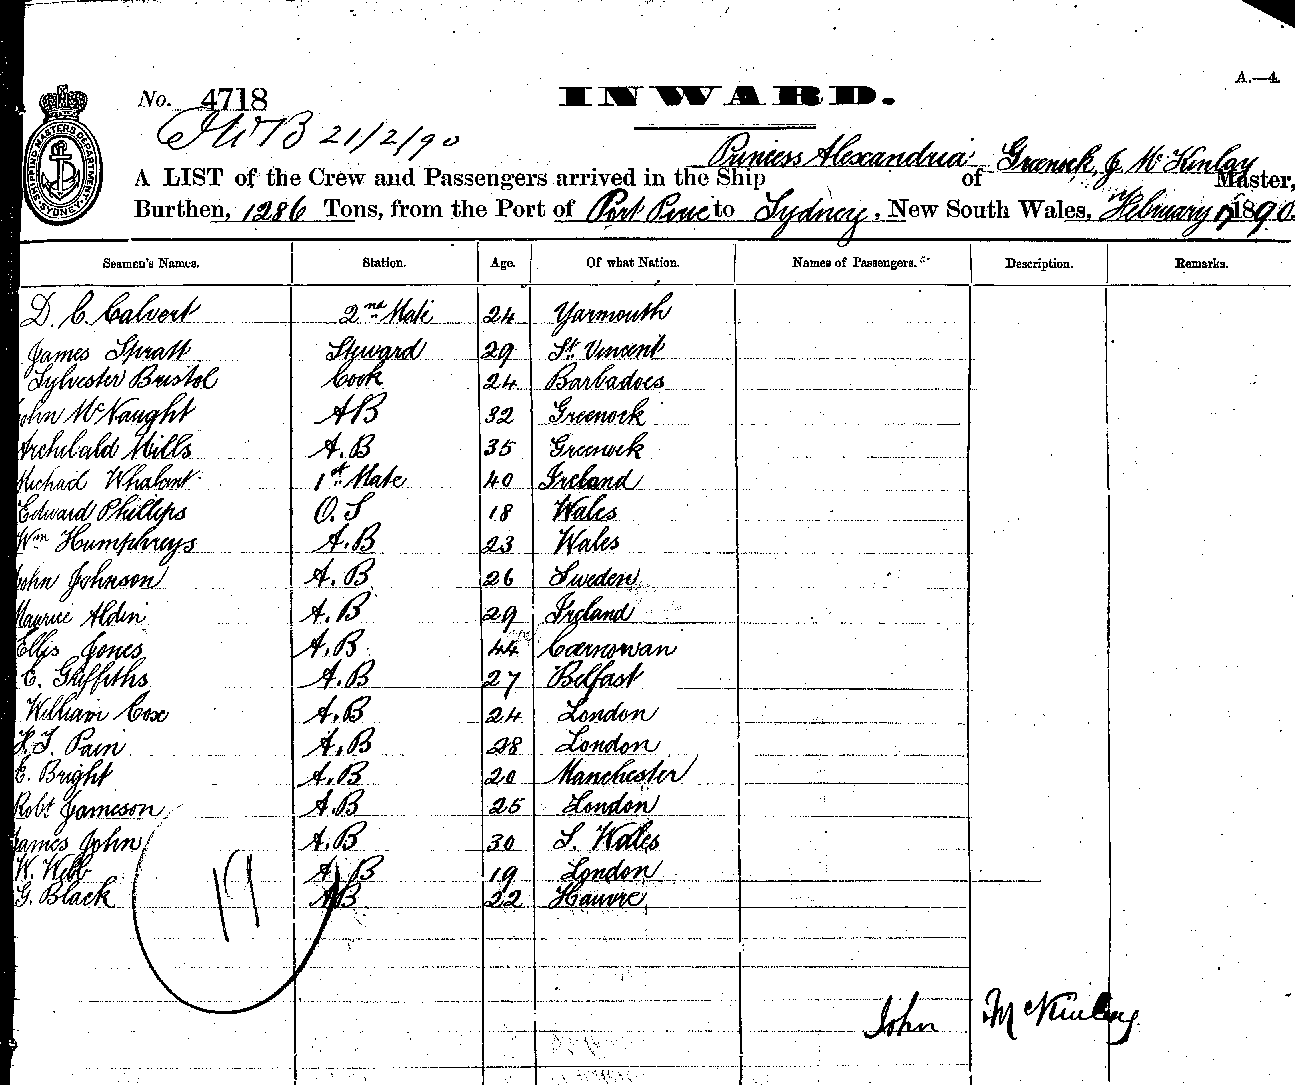 A.—4.
No. 4718 INWARD.
JWB 21/2/90
SHIPPING MASTERS DEPARTMENT SYDNEY
A LIST of the Crew and Passengers arrived in the Ship Princess Alexandria of Greenock, J. McKinlay Master,
Burthen, 1286 Tons, from the Port of Port Pirie to Sydney, New South Wales, February 1890.
Seamen's Names. Station. Age. Of what Nation. Names of Passengers. Description. Remarks.
D. C. Calvert 2nd Mate 24 Yarmouth
James Spratt Steward 29 St. Vincent
Sylvester Bristol Cook 24 Barbadoes
John McNaught AB 32 Greenock
Archibald Mills A.B 35 Greenock
1st Mate 40 Ireland
Edward Phillips O.S 18 Wales
Wm Humphreys A.B 23 Wales
John Johnson A.B 26 Sweden
Maurice Aldin A.B 29 Ireland
Ellis Jones A.B 44 Carnarvan
E. Griffiths A.B 27 Belfast
William Cox A.B 24 London
Pain A.B 28 London
E. Bright A.B 20 Manchester
Robt Jameson A.B 25 London
James John A.B 30 S. Wales
W. Webb A.B 19 London
G. Black AB 22 Hauvre
John McKinlay